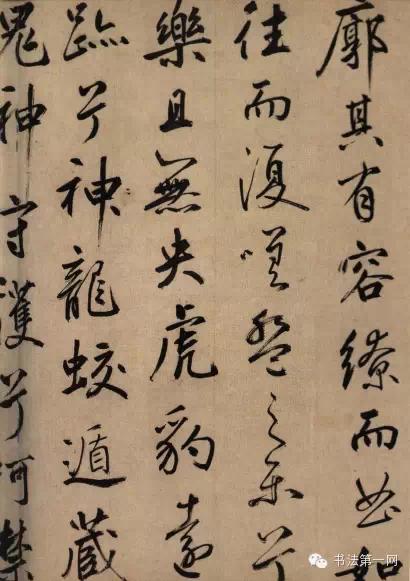 廓其有容繚而曲如
往而復嗟盤之樂兮
樂且無央虎豹遠
跡兮神龍蛟遁藏
鬼神守護兮呵禁
书法第一网